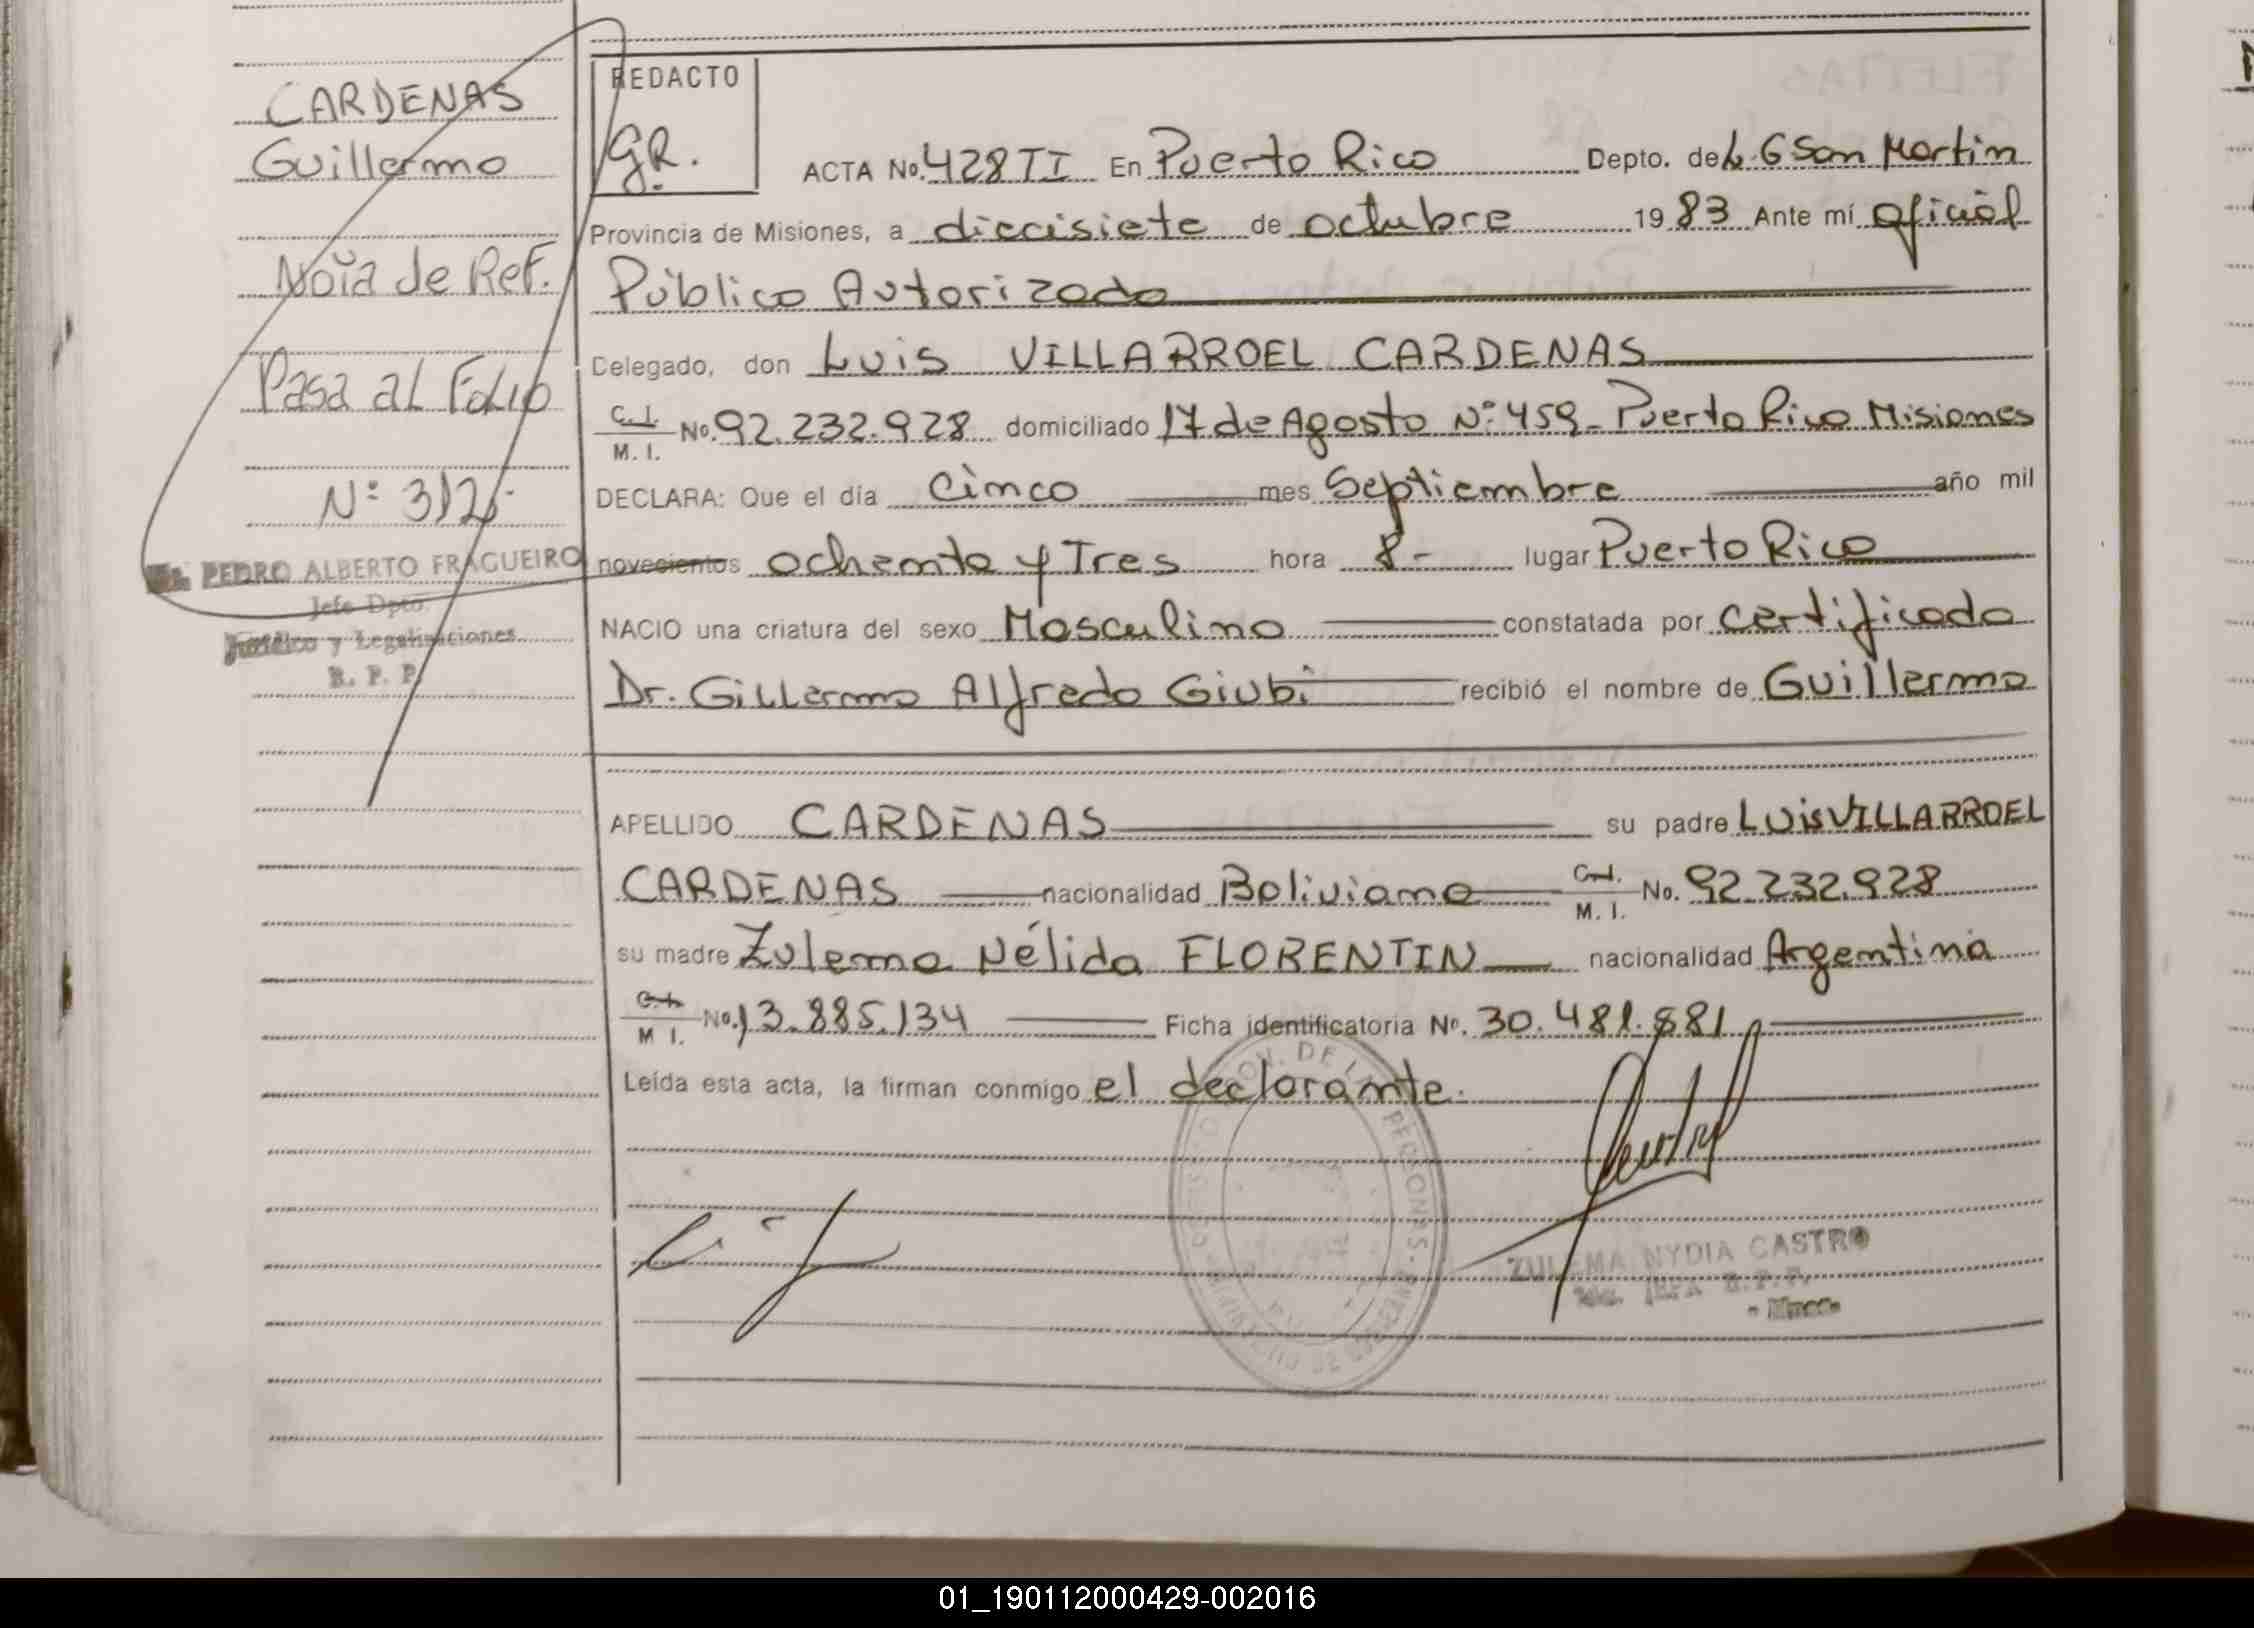 CARDENAS
Guillermo
Noia de Ref.
Pasa al Folio
N° 312
PEDRO ALBERTO FRAGUEIRO
Jefe Dpto.
Jurídico y Legalizaciones
R. P. P.
REDACTO
GR.
ACTA No. 428 TI En Puerto Rico Depto. de L. G San Martin
Provincia de Misiones, a diecisiete de octubre 1983 Ante mí oficial
Público Autorizado
Delegado, don Luis VILLARROEL CARDENAS
C. I. M. I. No. 92.232.928 domiciliado 17 de Agosto N° 459 - Puerto Rico Misiones
DECLARA: Que el día Cinco mes Septiembre año mil
novecientos ochenta y Tres hora 8- lugar Puerto Rico
NACIO una criatura del sexo Masculino constatada por certificado
Dr. Gillermo Alfredo Giubi recibió el nombre de Guillermo
APELLIDO CARDENAS su padre Luis VILLARROEL
CARDENAS nacionalidad Boliviana C. I. M. I. No. 92.232.928
su madre Zulema Nélida FLORENTIN nacionalidad Argentina
C. I. M I. No. 13.885.134 Ficha identificatoria No. 30.481.881
Leída esta acta, la firman conmigo el declarante.
ZULEMA NYDIA CASTRO
JEFA R.P.P.
01_190112000429-002016